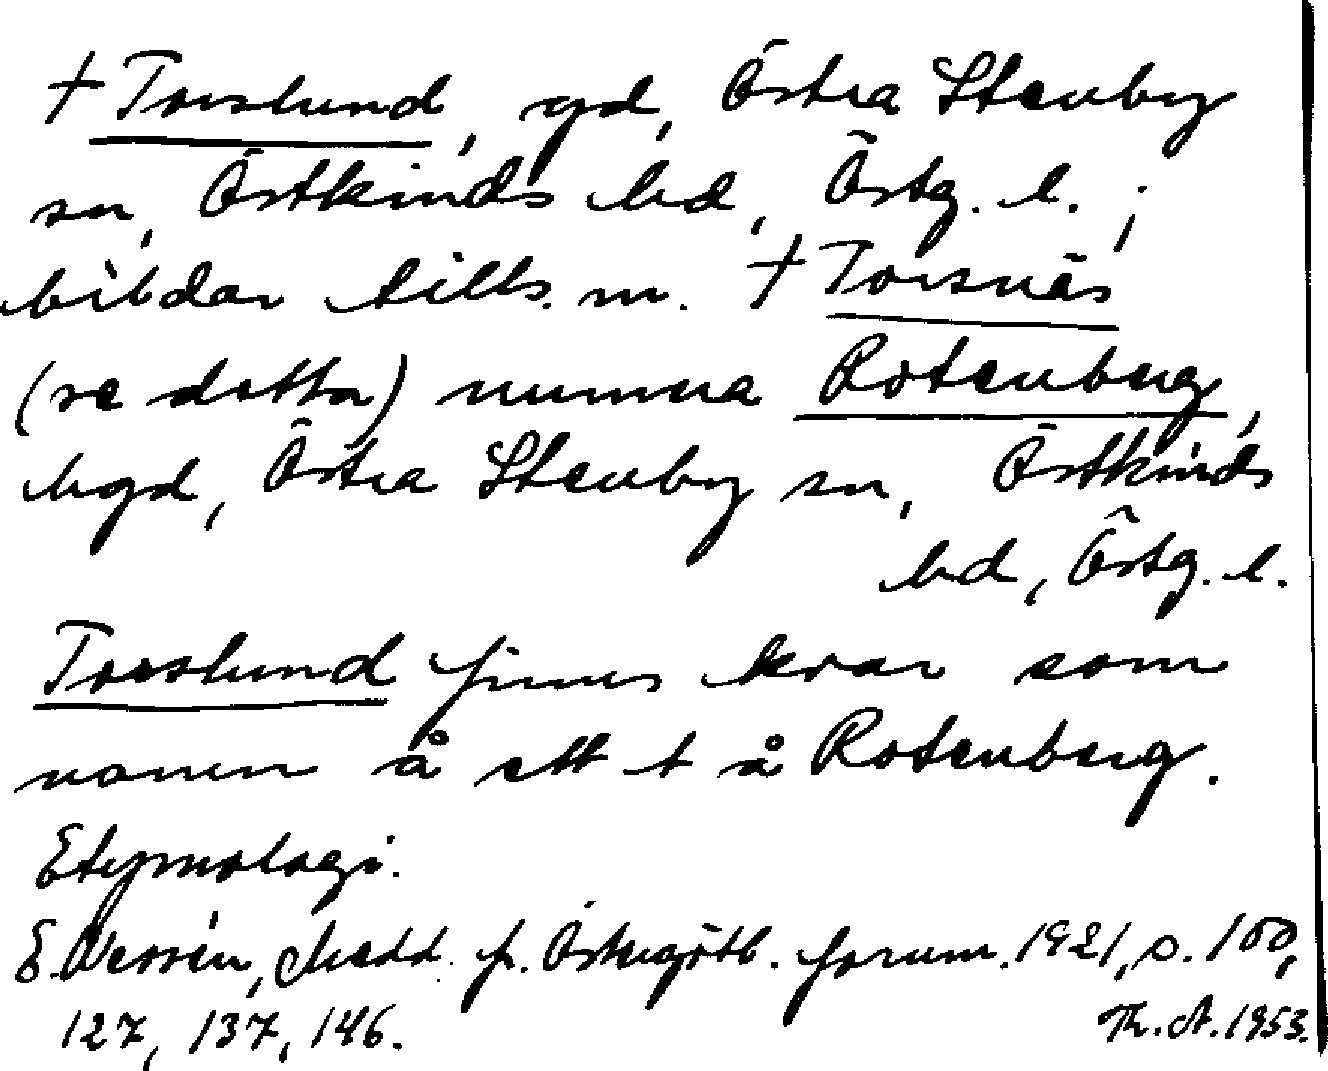 † Torslund, gd, Östra Stenby
sn, Östkinds hd, Östg. l. ;
bildar tills. m. † Torsnäs
(se detta) numera Rotenberg,
hgd, Östra Stenby sn, Östkinds
hd, Östg. l.
Torslund finnes kvar som
namn å ett t å Rotenberg.
Etymologi.
E. Wessén, Medd. fr. Östergötl. fornm. 1921, s. 100,
127, 137, 146.
Th. A. 1953.